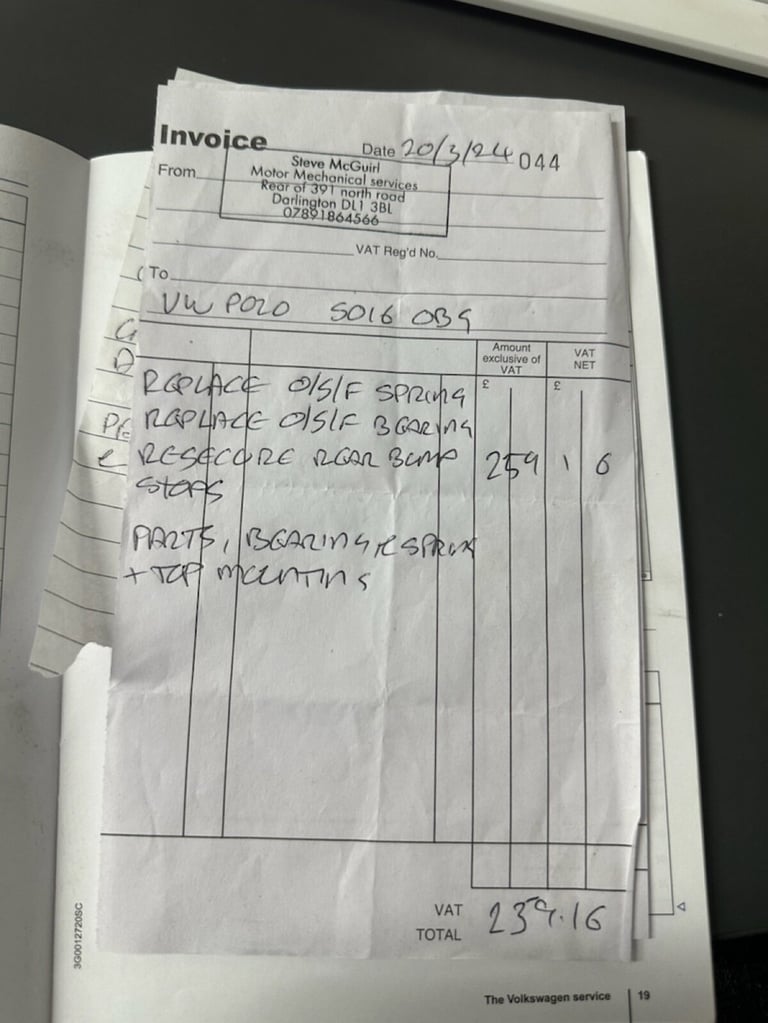 Invoice
Date 20/3/24 044
From
Steve McGuirl
Motor Mechanical services
Rear of 391 north road
Darlington DL1 3BL
07891864566
VAT Reg'd No.
To
VW POLO SO16 OBG
Amount exclusive of VAT
VAT NET
£ £
REPLACE O/S/F SPRING
REPLACE O/S/F BEARING
RESECURE REAR BUMP 259 16
STOPS
PARTS, BEARING & SPRING
+ TOP MOUNTING
VAT
TOTAL 259.16
3G0012720SC
The Volkswagen service 19